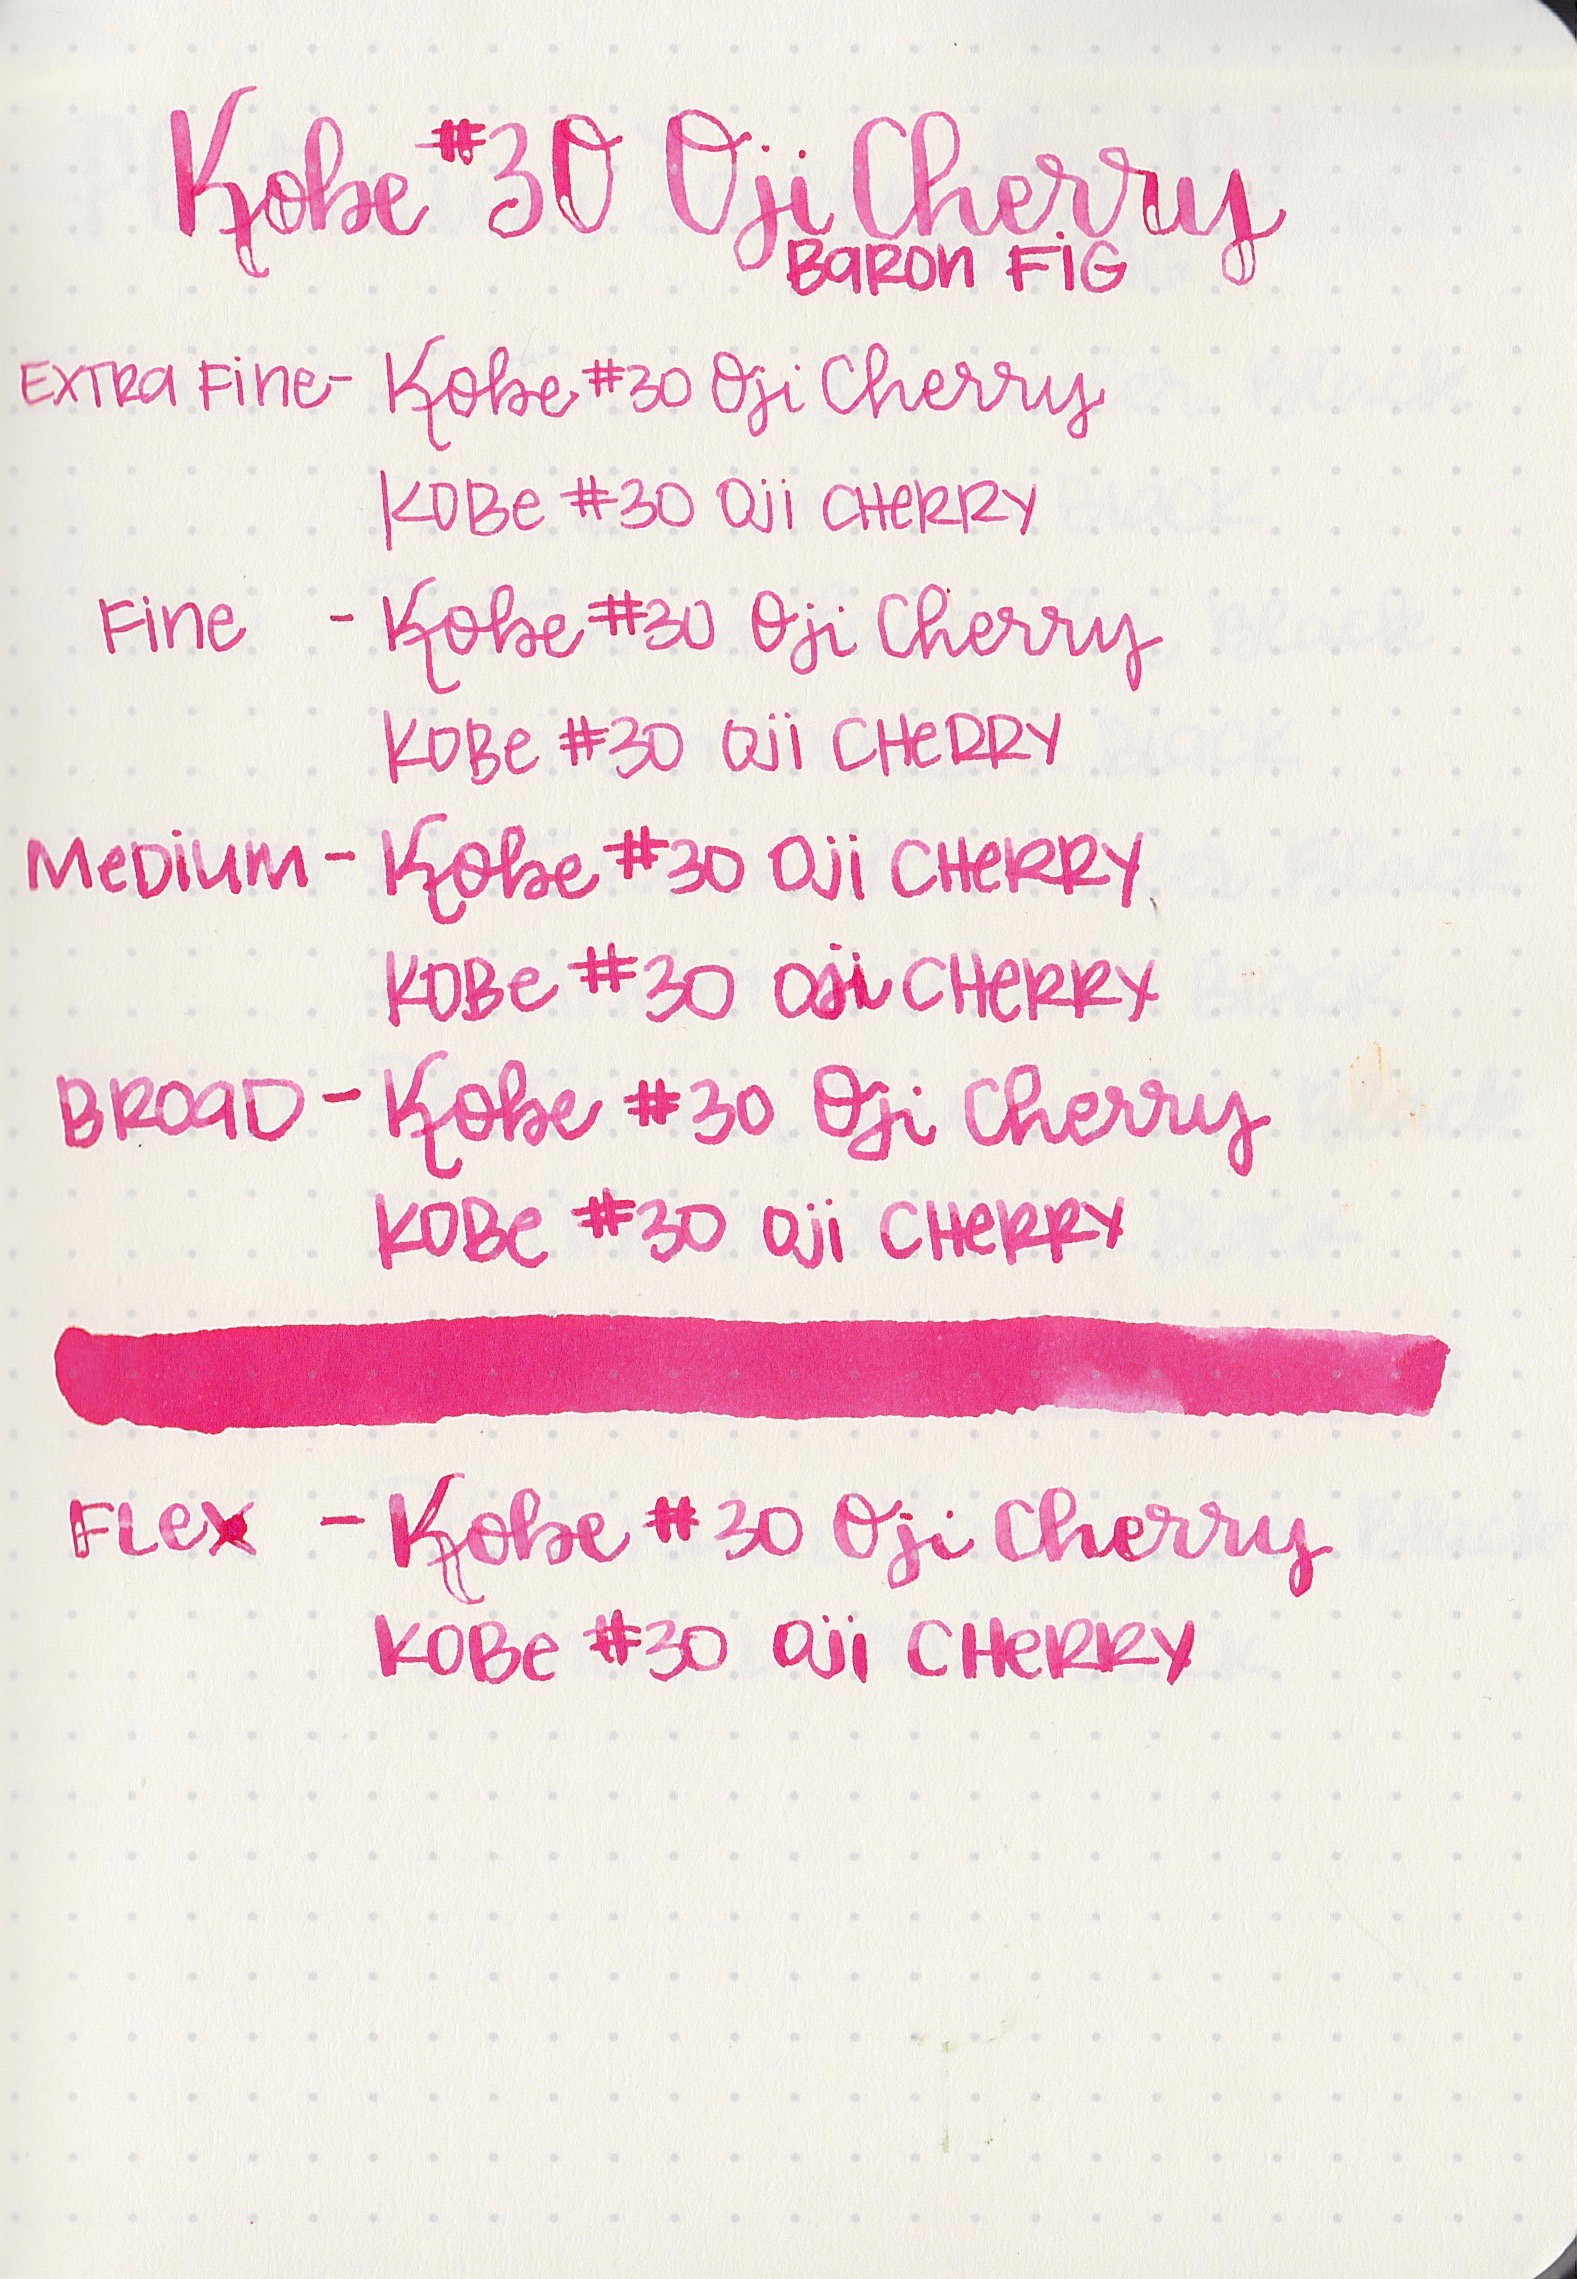 Kobe #30 Oji Cherry
BARON FIG
EXTRA Fine - Kobe #30 Oji Cherry
KOBe #30 Oji CHeRRY
Fine - Kobe #30 Oji Cherry
KOBe #30 Oji CHeRRY
MeDiUM - Kobe #30 Oji CHeRRY
KOBe #30 Oji CHeRRY
BROAD - Kobe #30 Oji Cherry
KOBe #30 Oji CHeRRY
FLex - Kobe #30 Oji Cherry
KOBe #30 Oji CHeRRY